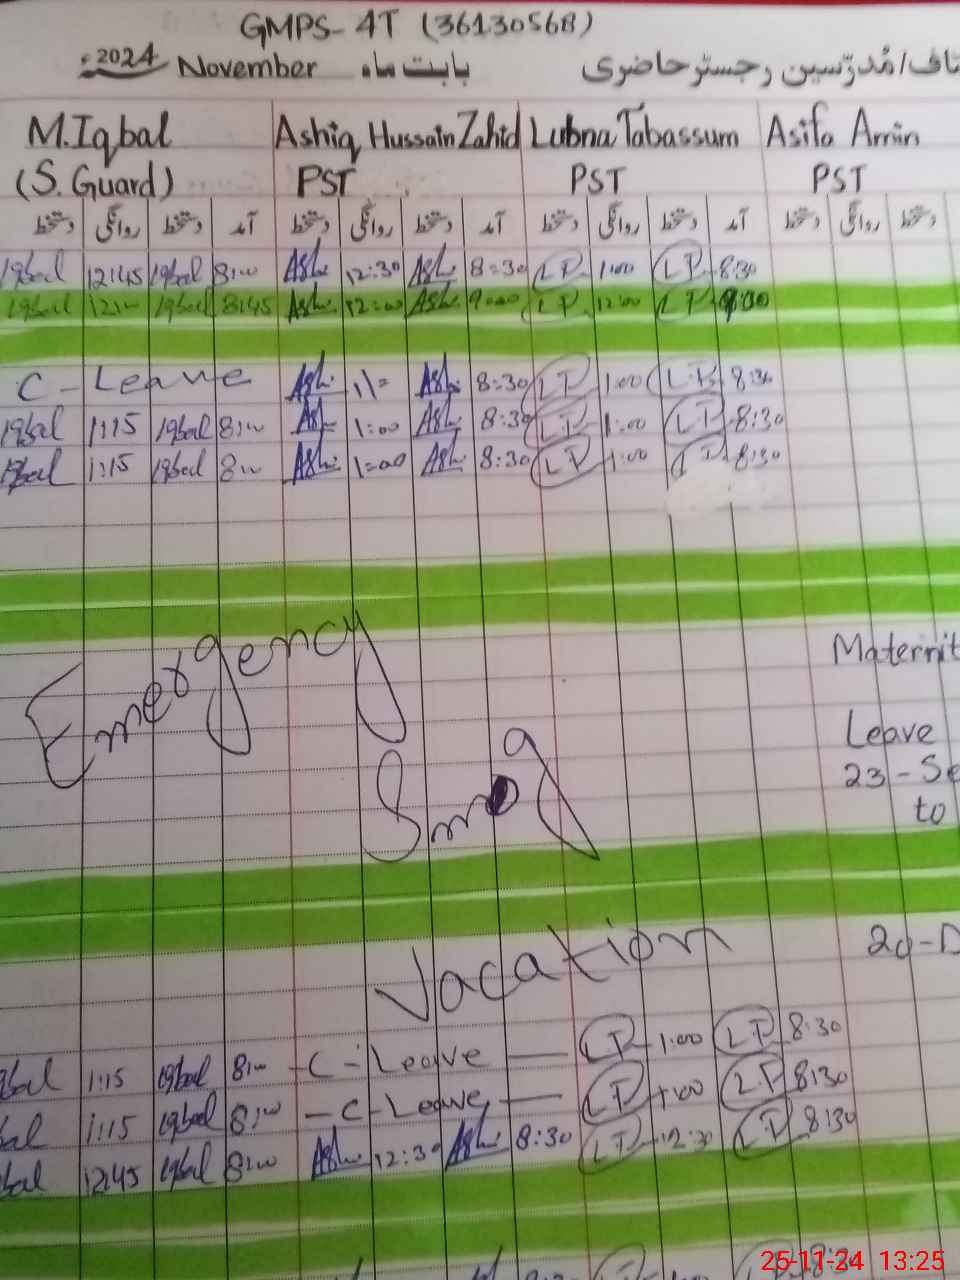 GMPS- 4T (36130568)
2024 November بابت ماہ تاف/مُدرّسین رجسٹر حاضری
M.Iqbal Ashiq Hussain Zahid Lubna Tabassum Asifa Amin
(S. Guard) PST PST PST
دستخط روانگی دستخط آمد دستخط روانگی دستخط آمد دستخط روانگی دستخط آمد دستخط روانگی دستخط
Iqbal 12:45 Iqbal 8:00 Ash. 12:30 Ash. 8=30 LT 1:00 LT 8:30
Iqbal 12:00 Iqbal 8:45 Ash. 12=00 Ash. 9=00 LT 12:00 LT 9:30
C-Leave Ash. Ash. 8=30 LT 1:00 LT 8:30
Iqbal 1:15 Iqbal 8:00 Ash 1:00 Ash. 8:30 LT 1:00 LT 8:30
Iqbal 1:15 Iqbal 8:00 Ash. 1=00 Ash. 8:30 LT 1:00 LT 8:30
Emergency
Maternit
Smog
Leave
23-Se
to
Vacation
20-D
bal 1:15 Iqbal 8:00 -C-Leave — LT 1:00 LT 8:30
bal 1:15 Iqbal 8:00 -C-Leave — LT 1:00 LT 8:30
bal 12:45 Iqbal 8:00 Ash. 12:30 Ash. 8:30 LT 12:30 LT 8:30
8:30
25-11-24 13:25